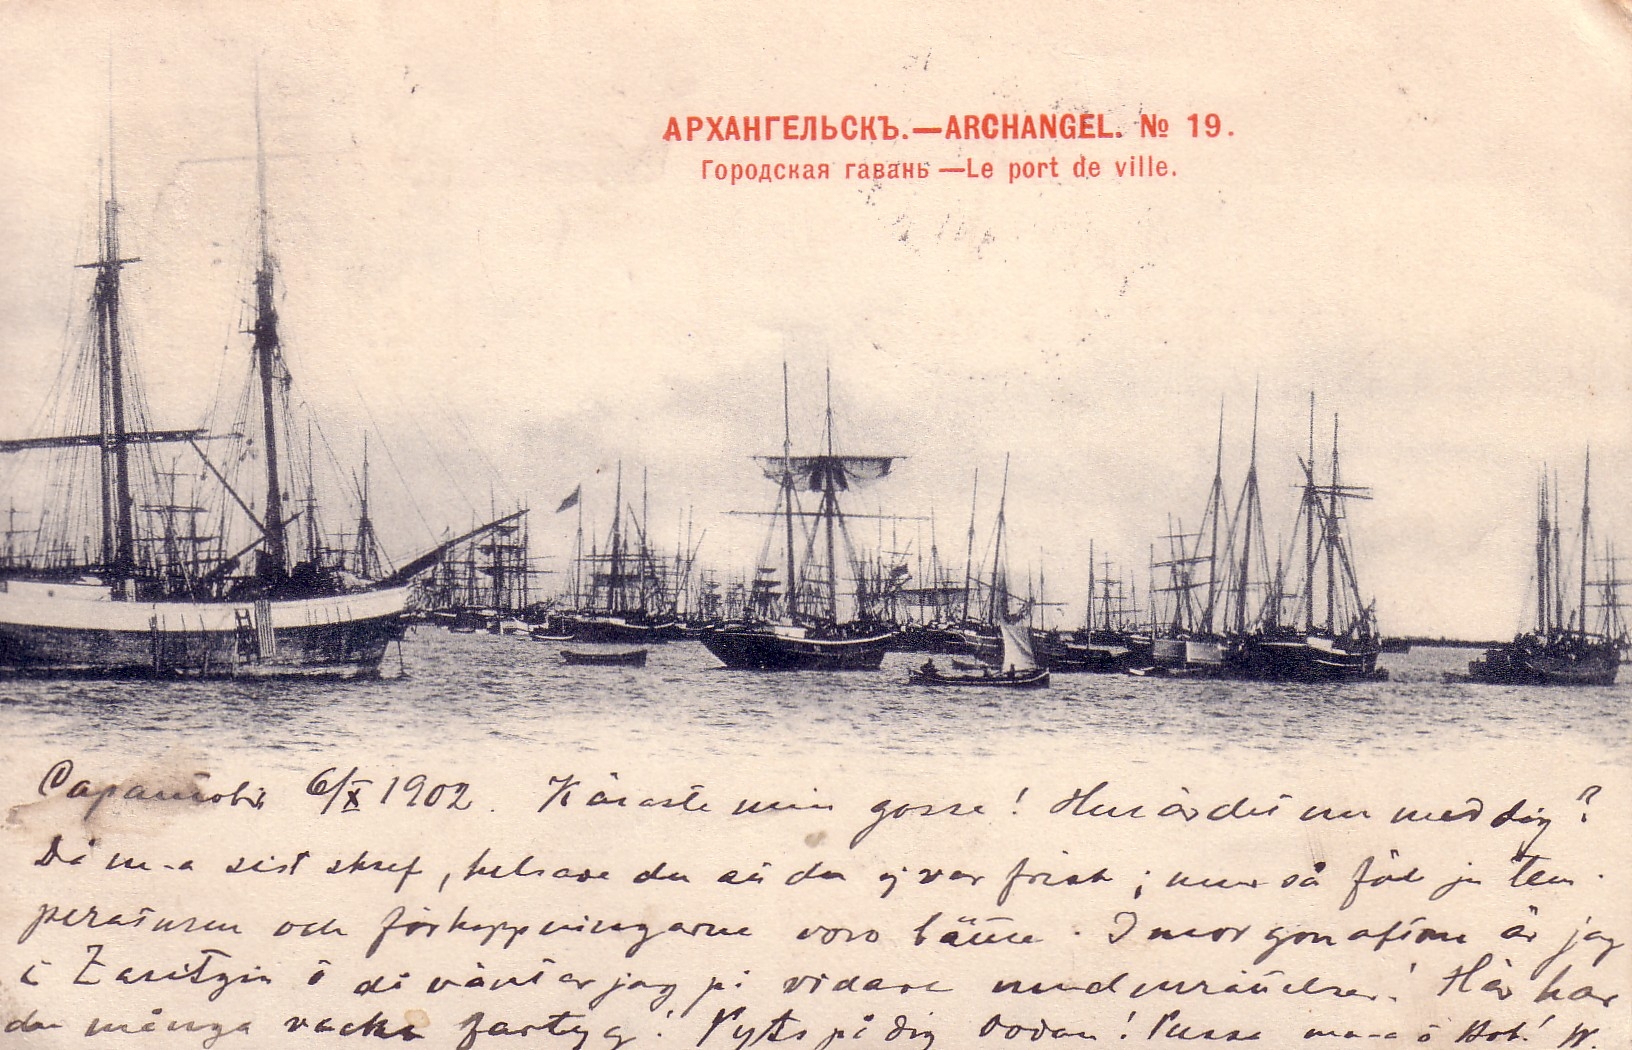 АРХАНГЕЛЬСКЪ.—ARCHANGEL. № 19.
Городская гавань —Le port de ville.
Саратовъ 6/X 1902. Käraste min gosse! Hur är det nu med dig?
Då m-a sist skref, du du ej var frisk; men så föll ju tem-
peraturen och förhoppningarne voro bättre. I morgon afton är jag
i Zaritzin o då väntar jag på vidare underrättelser! Här har
du många vackra fartyg! på dig Pussa m-a o W.